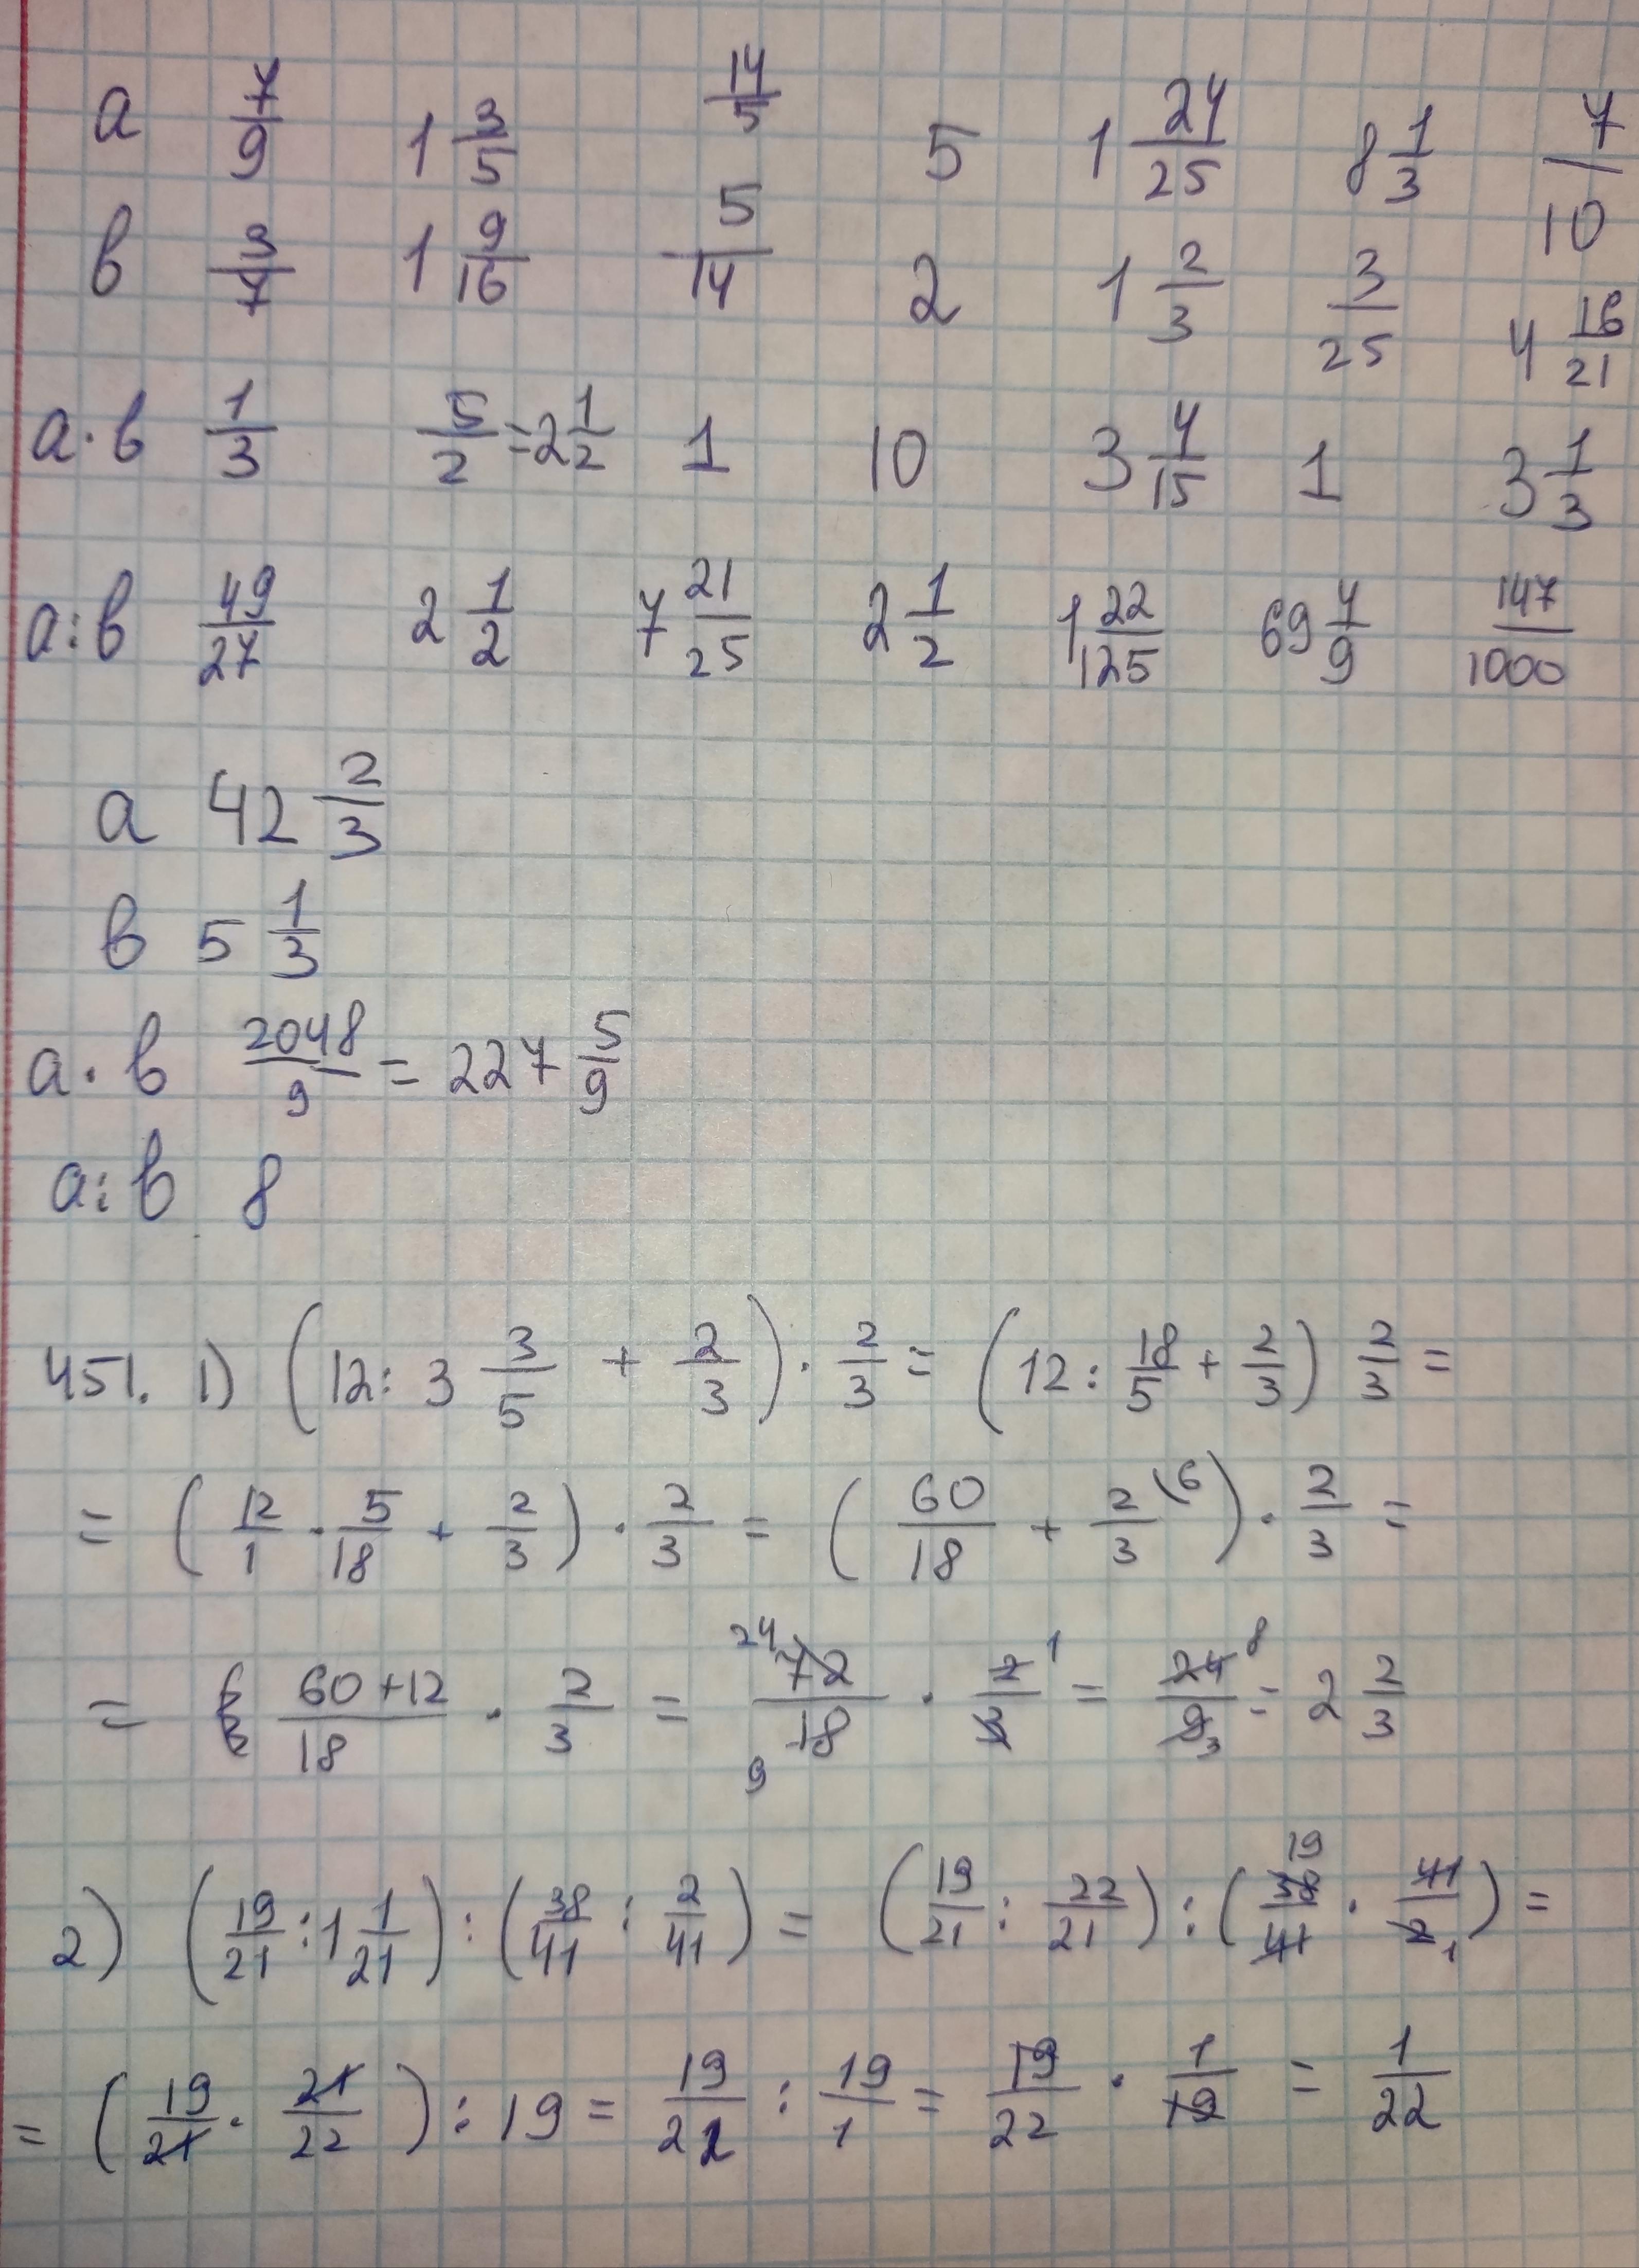 a 7/9 1 3/5 14/5 5 1 24/25 8 1/3 7/10
в 3/7 1 9/16 5/14 2 1 2/3 3/25 4 16/21
a · в 1/3 5/2 = 2 1/2 1 10 3 4/15 1 3 1/3
a : в 49/27 2 1/2 7 21/25 2 1/2 1 22/125 69 4/9 147/1000
a 42 2/3
в 5 1/3
a · в 2048/9 = 227 5/9
a : в 8
451. 1) (12 : 3 3/5 + 2/3) · 2/3 = (12 : 18/5 + 2/3) 2/3 =
= (12/1 · 5/18 + 2/3) · 2/3 = (60/18 + 2/3 (6) · 2/3 =
= (60+12)/18 · 2/3 = 24 72/18 9 · 2/3 1 = 24/9 8 3 = 2 2/3
2) (19/21 : 1 1/21) : (38/41 : 2/41) = (19/21 : 22/21) : (19 38/41 · 41/2 1) =
= (19/21 · 21/22) : 19 = 19/22 : 19/1 = 19/22 · 1/19 = 1/22